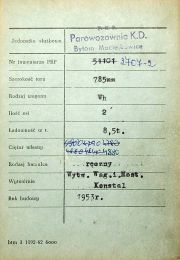 P.K.P.
Jednostka służbowa Parowozownia K.D.
Bytom Maciejkowice
Nr inwentarza PKP 51101 3707-2
Szerokość toru 785mm
Rodzaj wagonu Wh
Ilość osi 2
Ładowność w t. 8,5t.
Ciężar własny
4880
Rodzaj hamulca ręczny
Wytw. Wag.i,Most.
Wytwórnia Konstal
Rok budowy 1953r.